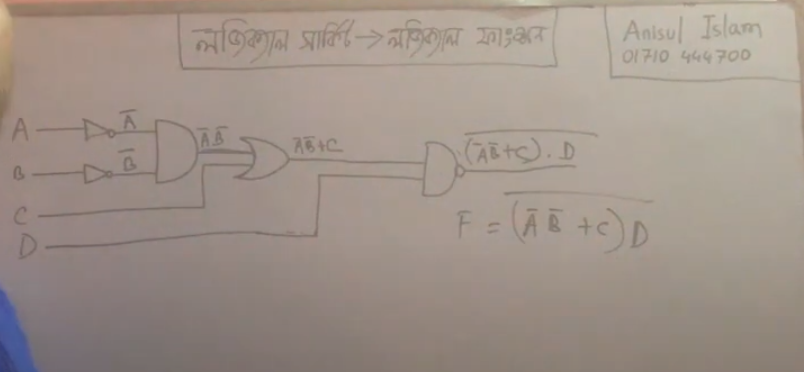 লজিক্যাল সার্কিট → লজিক্যাল ফাংশন
Anisul Islam
01710 444700
A
A̅
A̅ B̅
A̅B̅+C
B
B̅
C
D
\overline{(A̅B̅+C).D}
F = \overline{(A̅ B̅ +C)D}